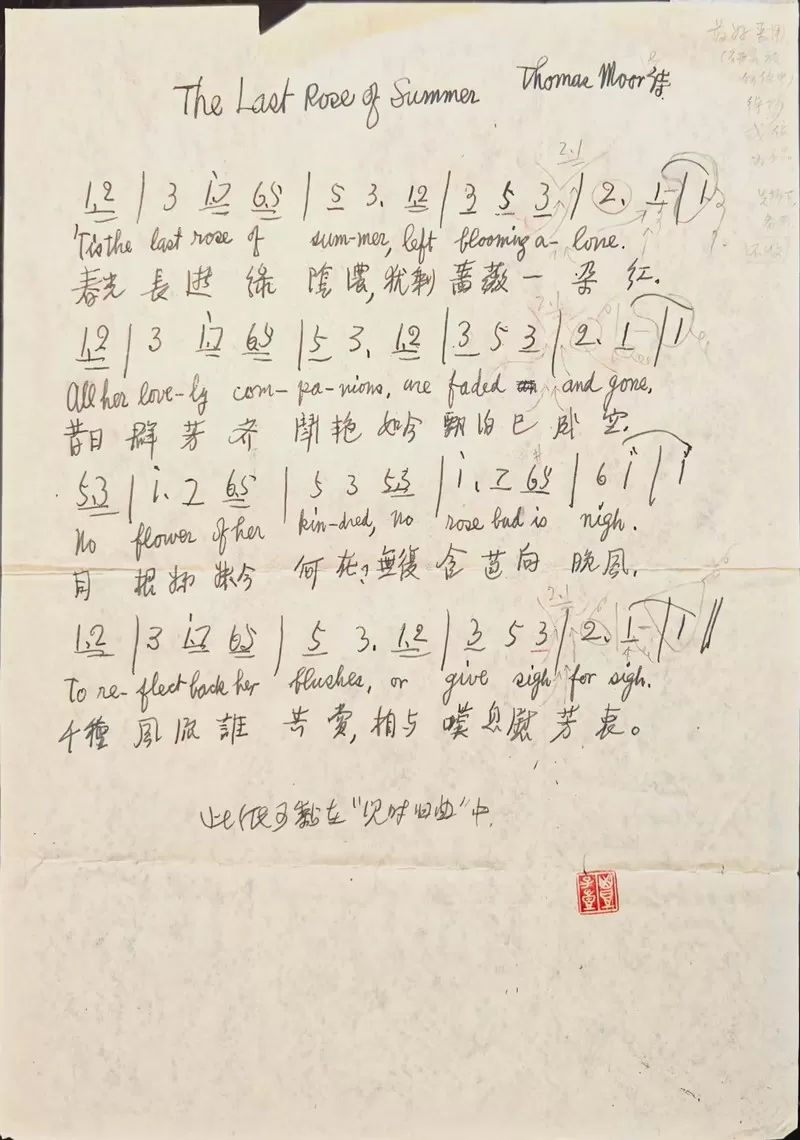 The Last Rose of Summer Thomas Moor
1.2 | 3 i.7 6.5 | 5 3. 1.2 | 3 5 3 | 2. 1- | 1
'Tis the last rose of sum-mer, left blooming a-lone.
春光長逝綠陰濃,猶剩薔薇一朵紅.
1.2 | 3 i.7 6.5 | 5 3. 1.2 | 3 5 3 | 2. 1- | 1
All her love-ly com-pa-nions, are faded and gone,
昔日群芳齐鬪艳如今飘泊已成空.
5.3 | i. 7 6.5 | 5 3 5.3 | i. 7 6.5 | 6 i | i
No flower of her kin-dred, no rose bud is nigh.
同根姊妹今何在?無復含苞向晚風.
1.2 | 3 i.7 6.5 | 5 3. 1.2 | 3 5 3 | 2. 1- | 1 ||
To re-flect back her blushes, or give sigh for sigh.
千種風流誰共賞,相与嘆息慰芳衷。
此纸可黏在"儿时旧曲"中.
2.1
2.1
2.1